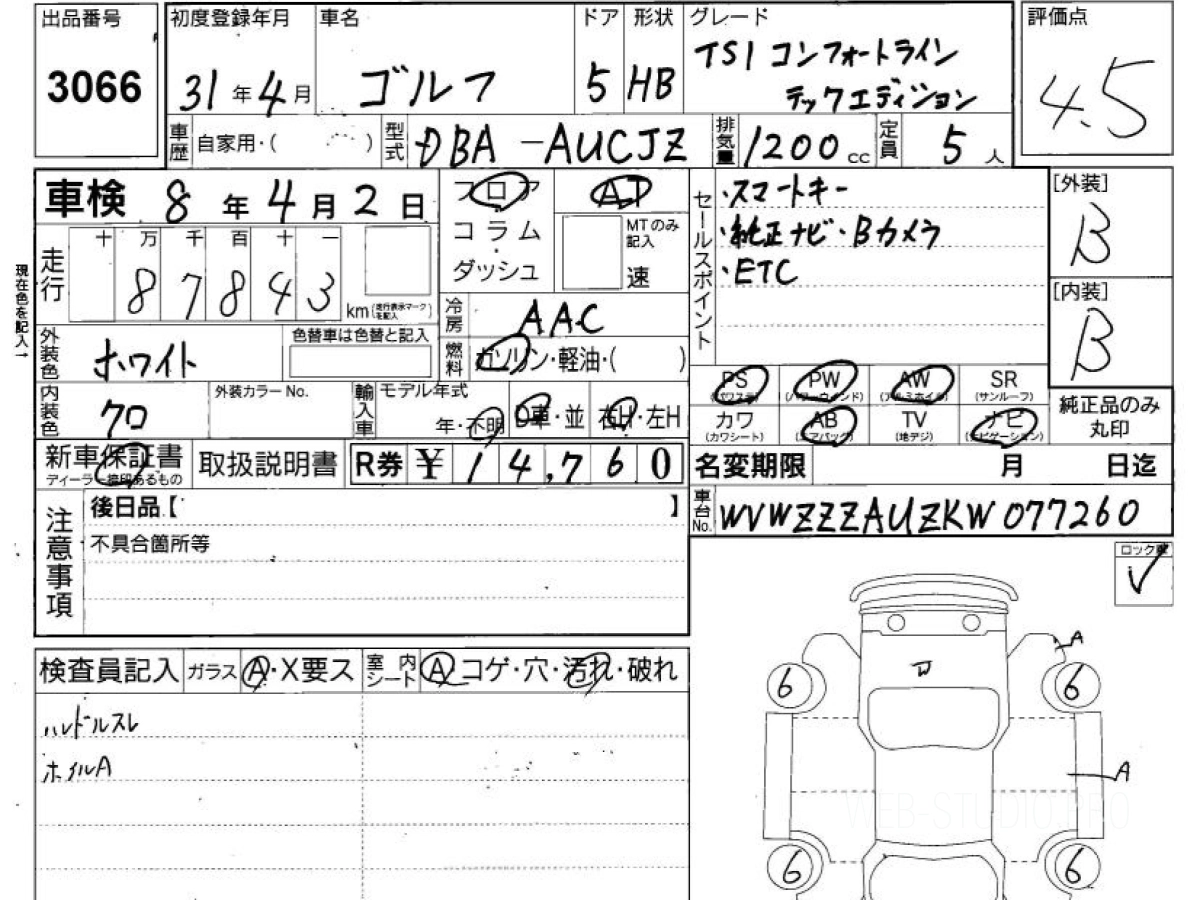 出品番号
3066
初度登録年月
31年4月
車名
ゴルフ
ドア
5
形状
HB
グレード
TSI コンフォートライン
テックエディション
評価点
4.5
車歴
自家用・( )
型式
DBA-AUCJZ
排気量
1200cc
定員
5人
車検 8年4月2日
フロア
コラム
ダッシュ
AT
MTのみ記入
速
セールスポイント
・スマートキー
・純正ナビ・Bカメラ
・ETC
[外装]
B
[内装]
B
現在色を記入→
走行
十 万 千 百 十 一
8 7 8 4 3
km(走行表示マークを記入)
冷房
AAC
外装色
ホワイト
色替車は色替と記入
燃料
ガソリン・軽油・( )
内装色
クロ
外装カラーNo.
輸入車
モデル年式
年・不明
D車・並
右H・左H
PS
(パワステ)
PW
(パワーウインド)
AW
(アルミホイル)
SR
(サンルーフ)
カワ
(カワシート)
AB
(エアバック)
TV
(地デジ)
ナビ
(ナビゲーション)
純正品のみ
丸印
新車保証書
ディーラー捺印あるもの
取扱説明書
R券 ¥14,760
名変期限 月 日迄
車台No.
WVWZZZAUZKW077260
注意事項
後日品【 】
不具合箇所等
ロック
✓
検査員記入
ガラス
A・X要ス
室内シート
A コゲ・穴・汚れ・破れ
ハンドルスレ
ホイルA
A
6
6
A
WEB-STUDIO.PRO
6
6